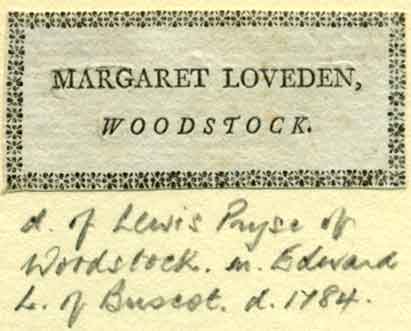 MARGARET LOVEDEN,
WOODSTOCK.
d. of Lewis Pryse of
Woodstock. m. Edward
L. of Buscot. d. 1784.